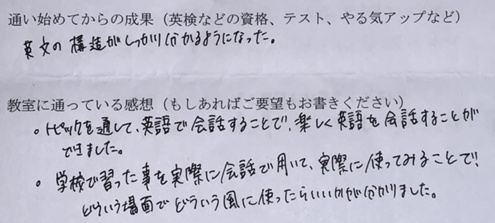 通い始めてからの成果（英検などの資格、テスト、やる気アップなど）
英文の構造がしっかり分かるようになった。
教室に通っている感想（もしあればご要望もお書きください）
。トピックを通して、英語で会話することで、楽しく英語を会話することが
できました。
。学校で習った事を実際に会話で用いて、実際に使ってみることで、
どういう場面でどういう風に使ったらいいかが分かりました。